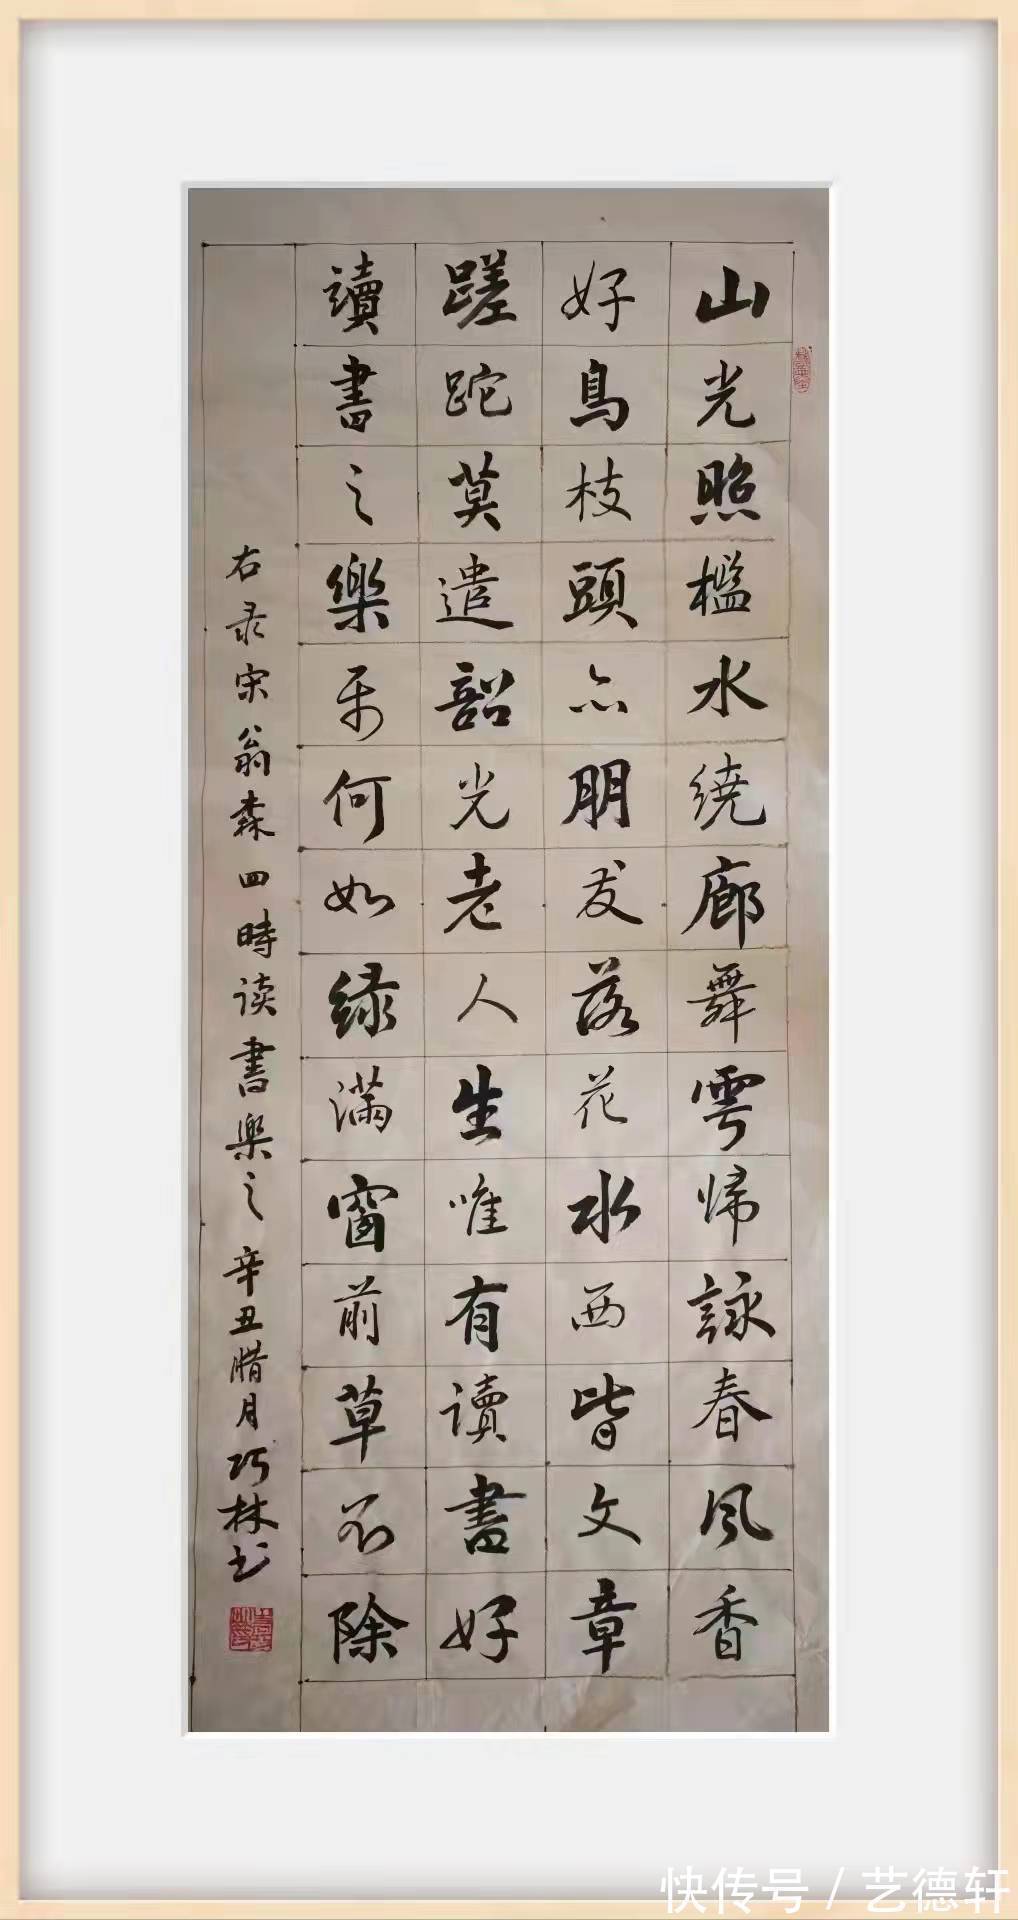 山光照檻水繞廊舞雩歸詠春風香
好鳥枝頭亦朋友落花水西皆文章
蹉跎莫遣韶光老人生唯有讀書好
讀書之樂乐何如緑滿窗前草不除
右录宋翁森四時读書樂之 辛丑腊月巧林书
快传号 / 艺德轩